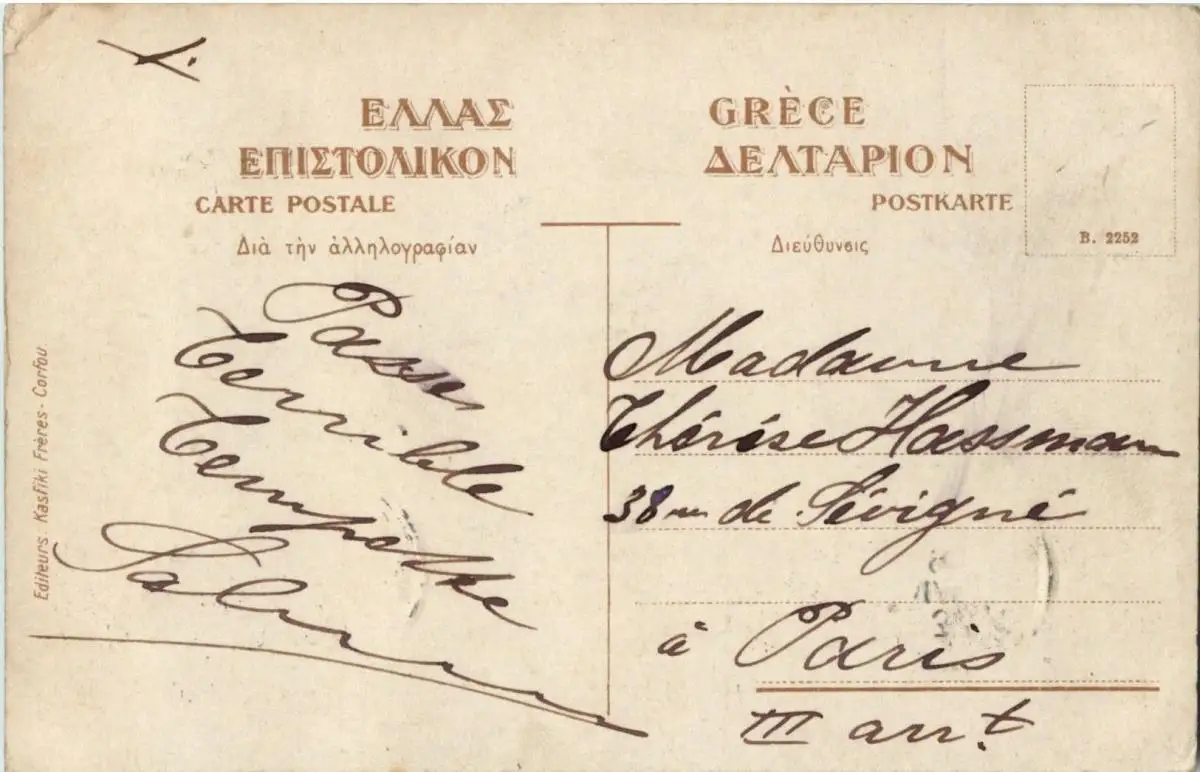 ΕΛΛΑΣ GRÈCE
ΕΠΙΣΤΟΛΙΚΟΝ ΔΕΛΤΑΡΙΟΝ
CARTE POSTALE POSTKARTE
Διὰ τὴν ἀλληλογραφίαν Διεύθυνσις
B. 2252
Passe
Terrible
Tempette
Editeurs Kasfiki Frères - Corfou
Madame
Thérèse Hassmann
38 rue de Sévigné
à Paris
III arr.t